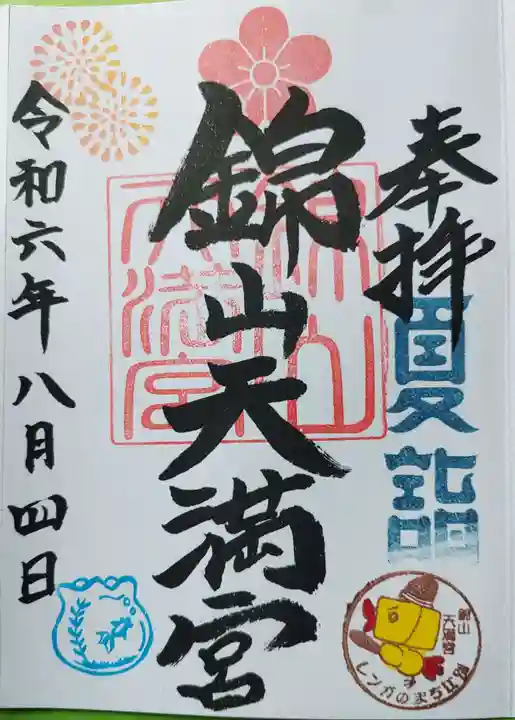 奉拝
夏詣
錦山天満宮
令和六年八月四日
錦山
天満宮
レンガのまち江別